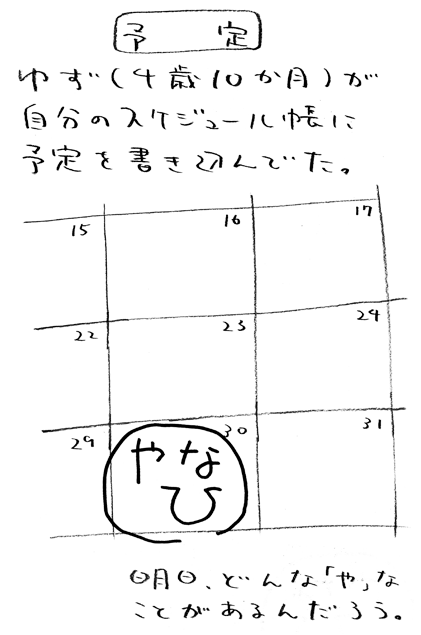 予定
ゆず(4歳10か月)が
自分のスケジュール帳に
予定を書き込んでた。
15 16 17
22 23 24
29 30 31
やな
ひ
明日、どんな「や」な
ことがあるんだろう。